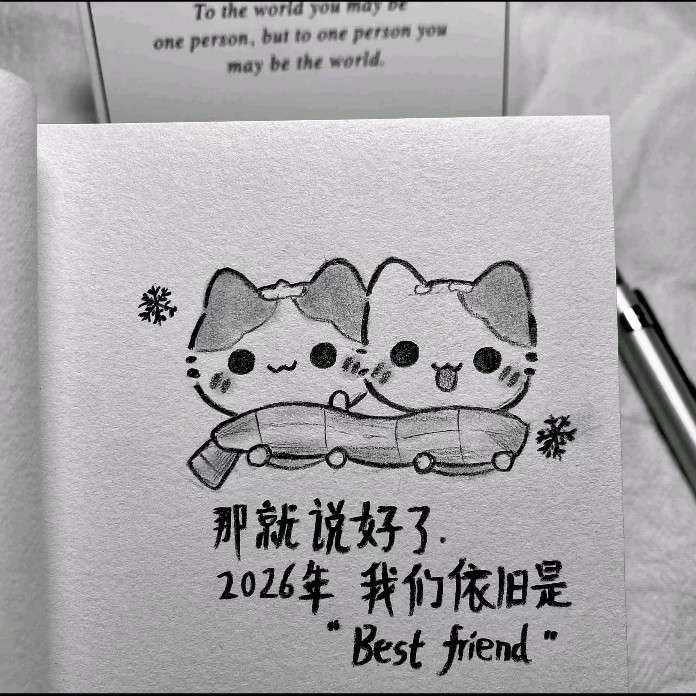 To the world you may be
one person, but to one person you
may be the world.
那就说好了.
2026年 我们依旧是
"Best friend"